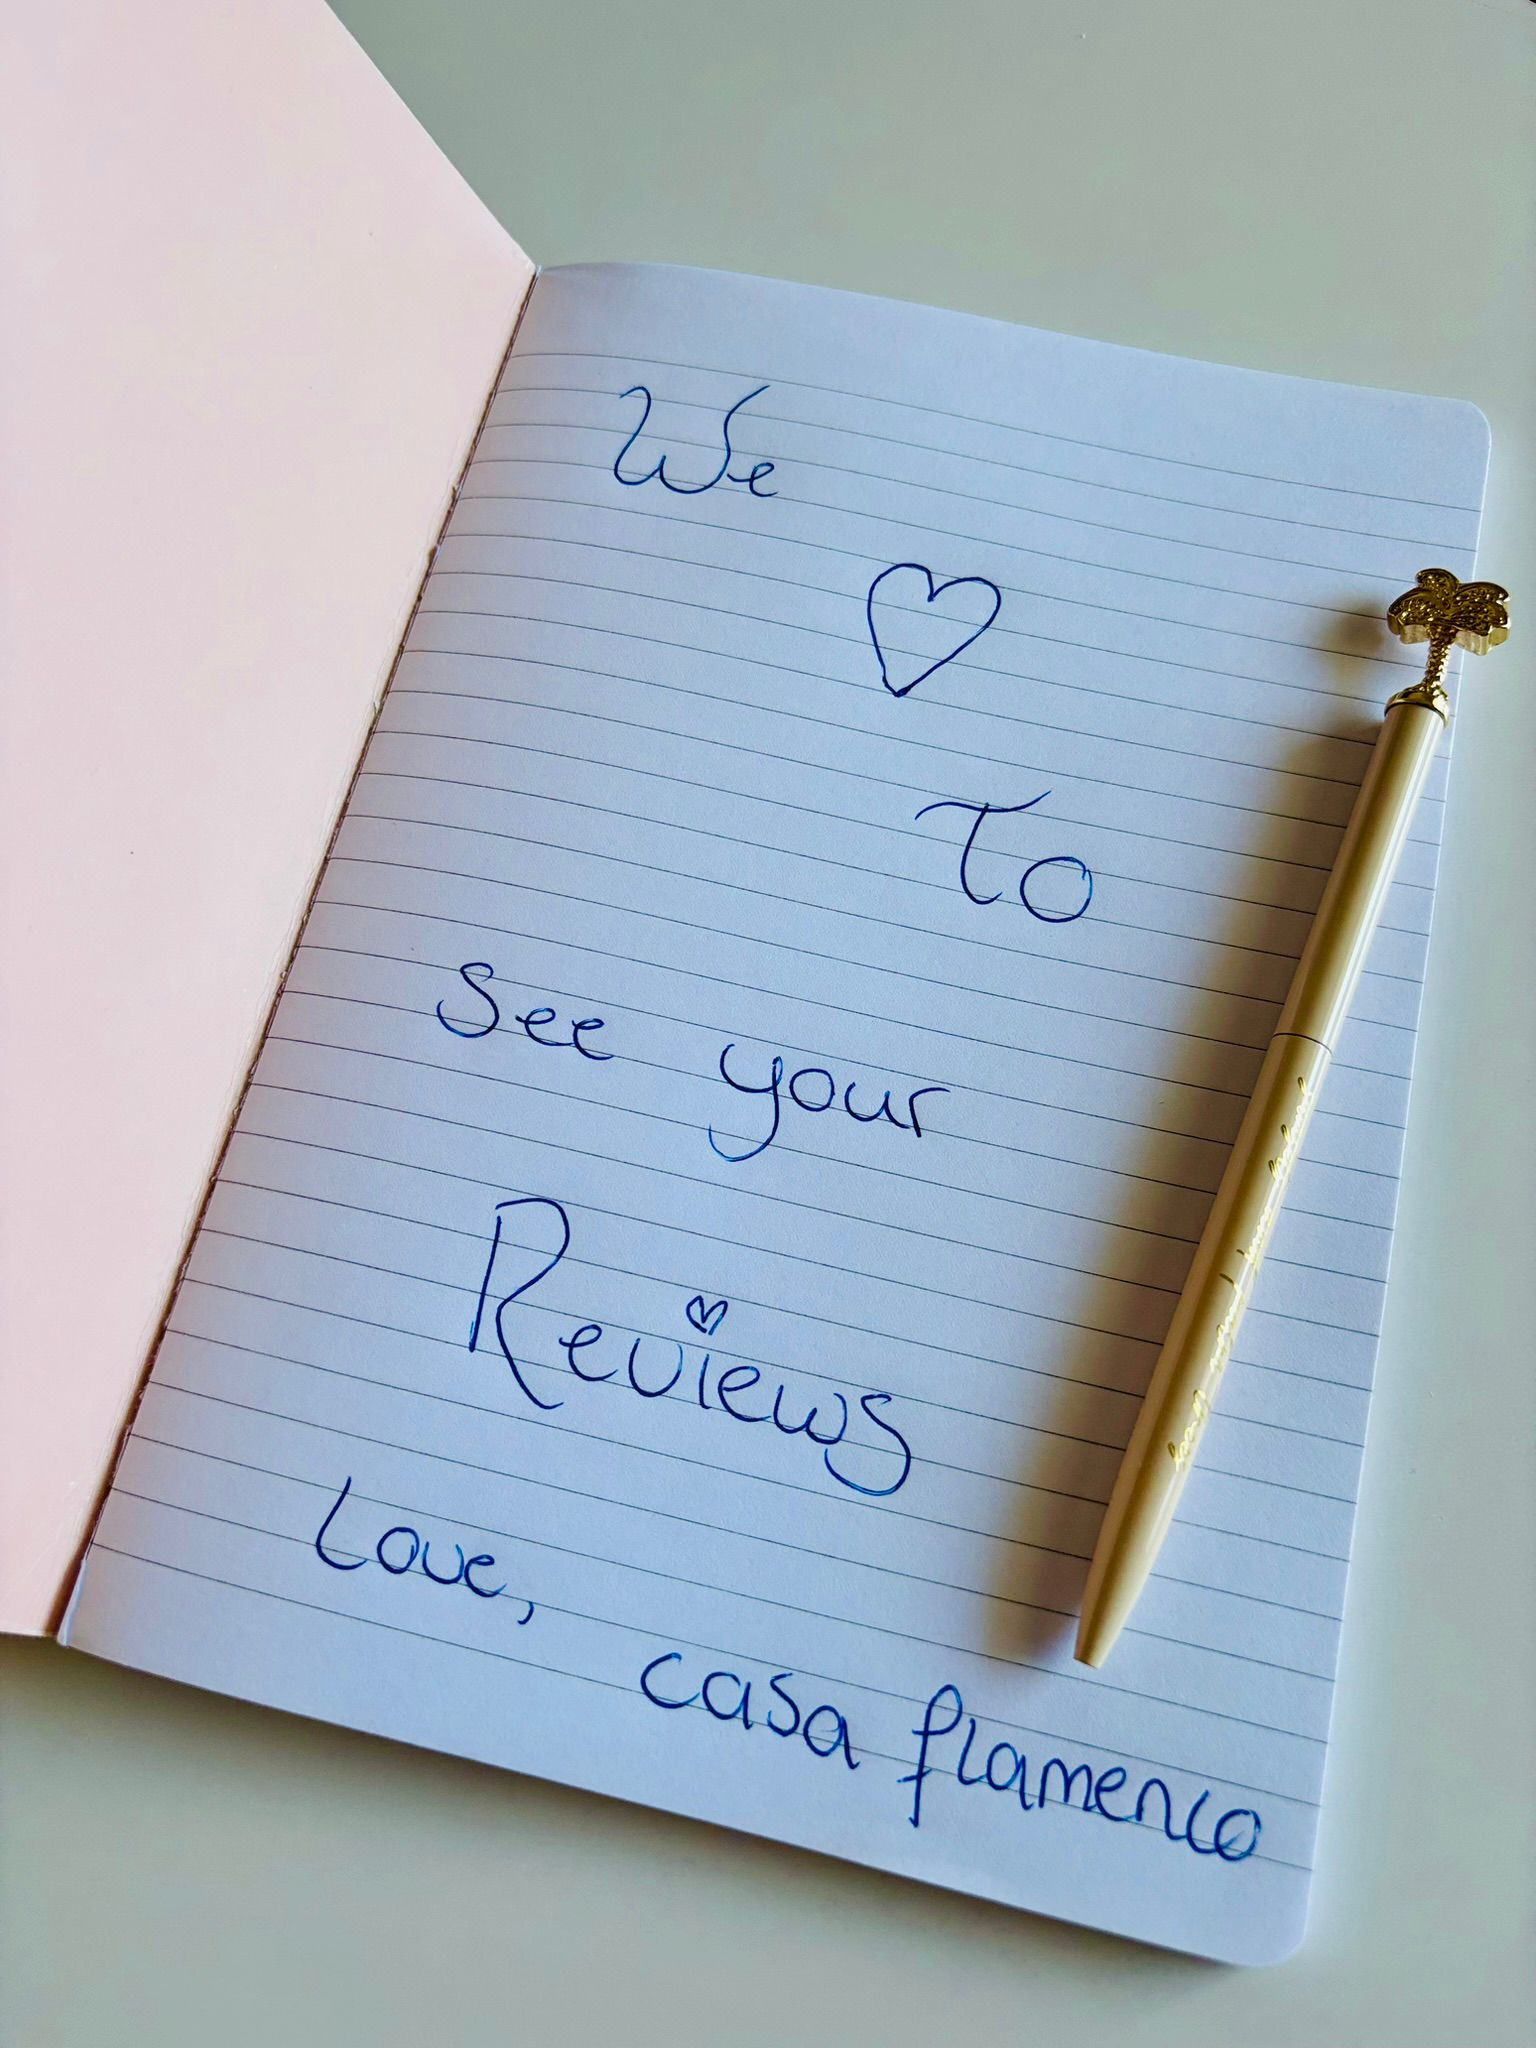 We
♡
To
See your
Reviews
Love,
casa flamenco